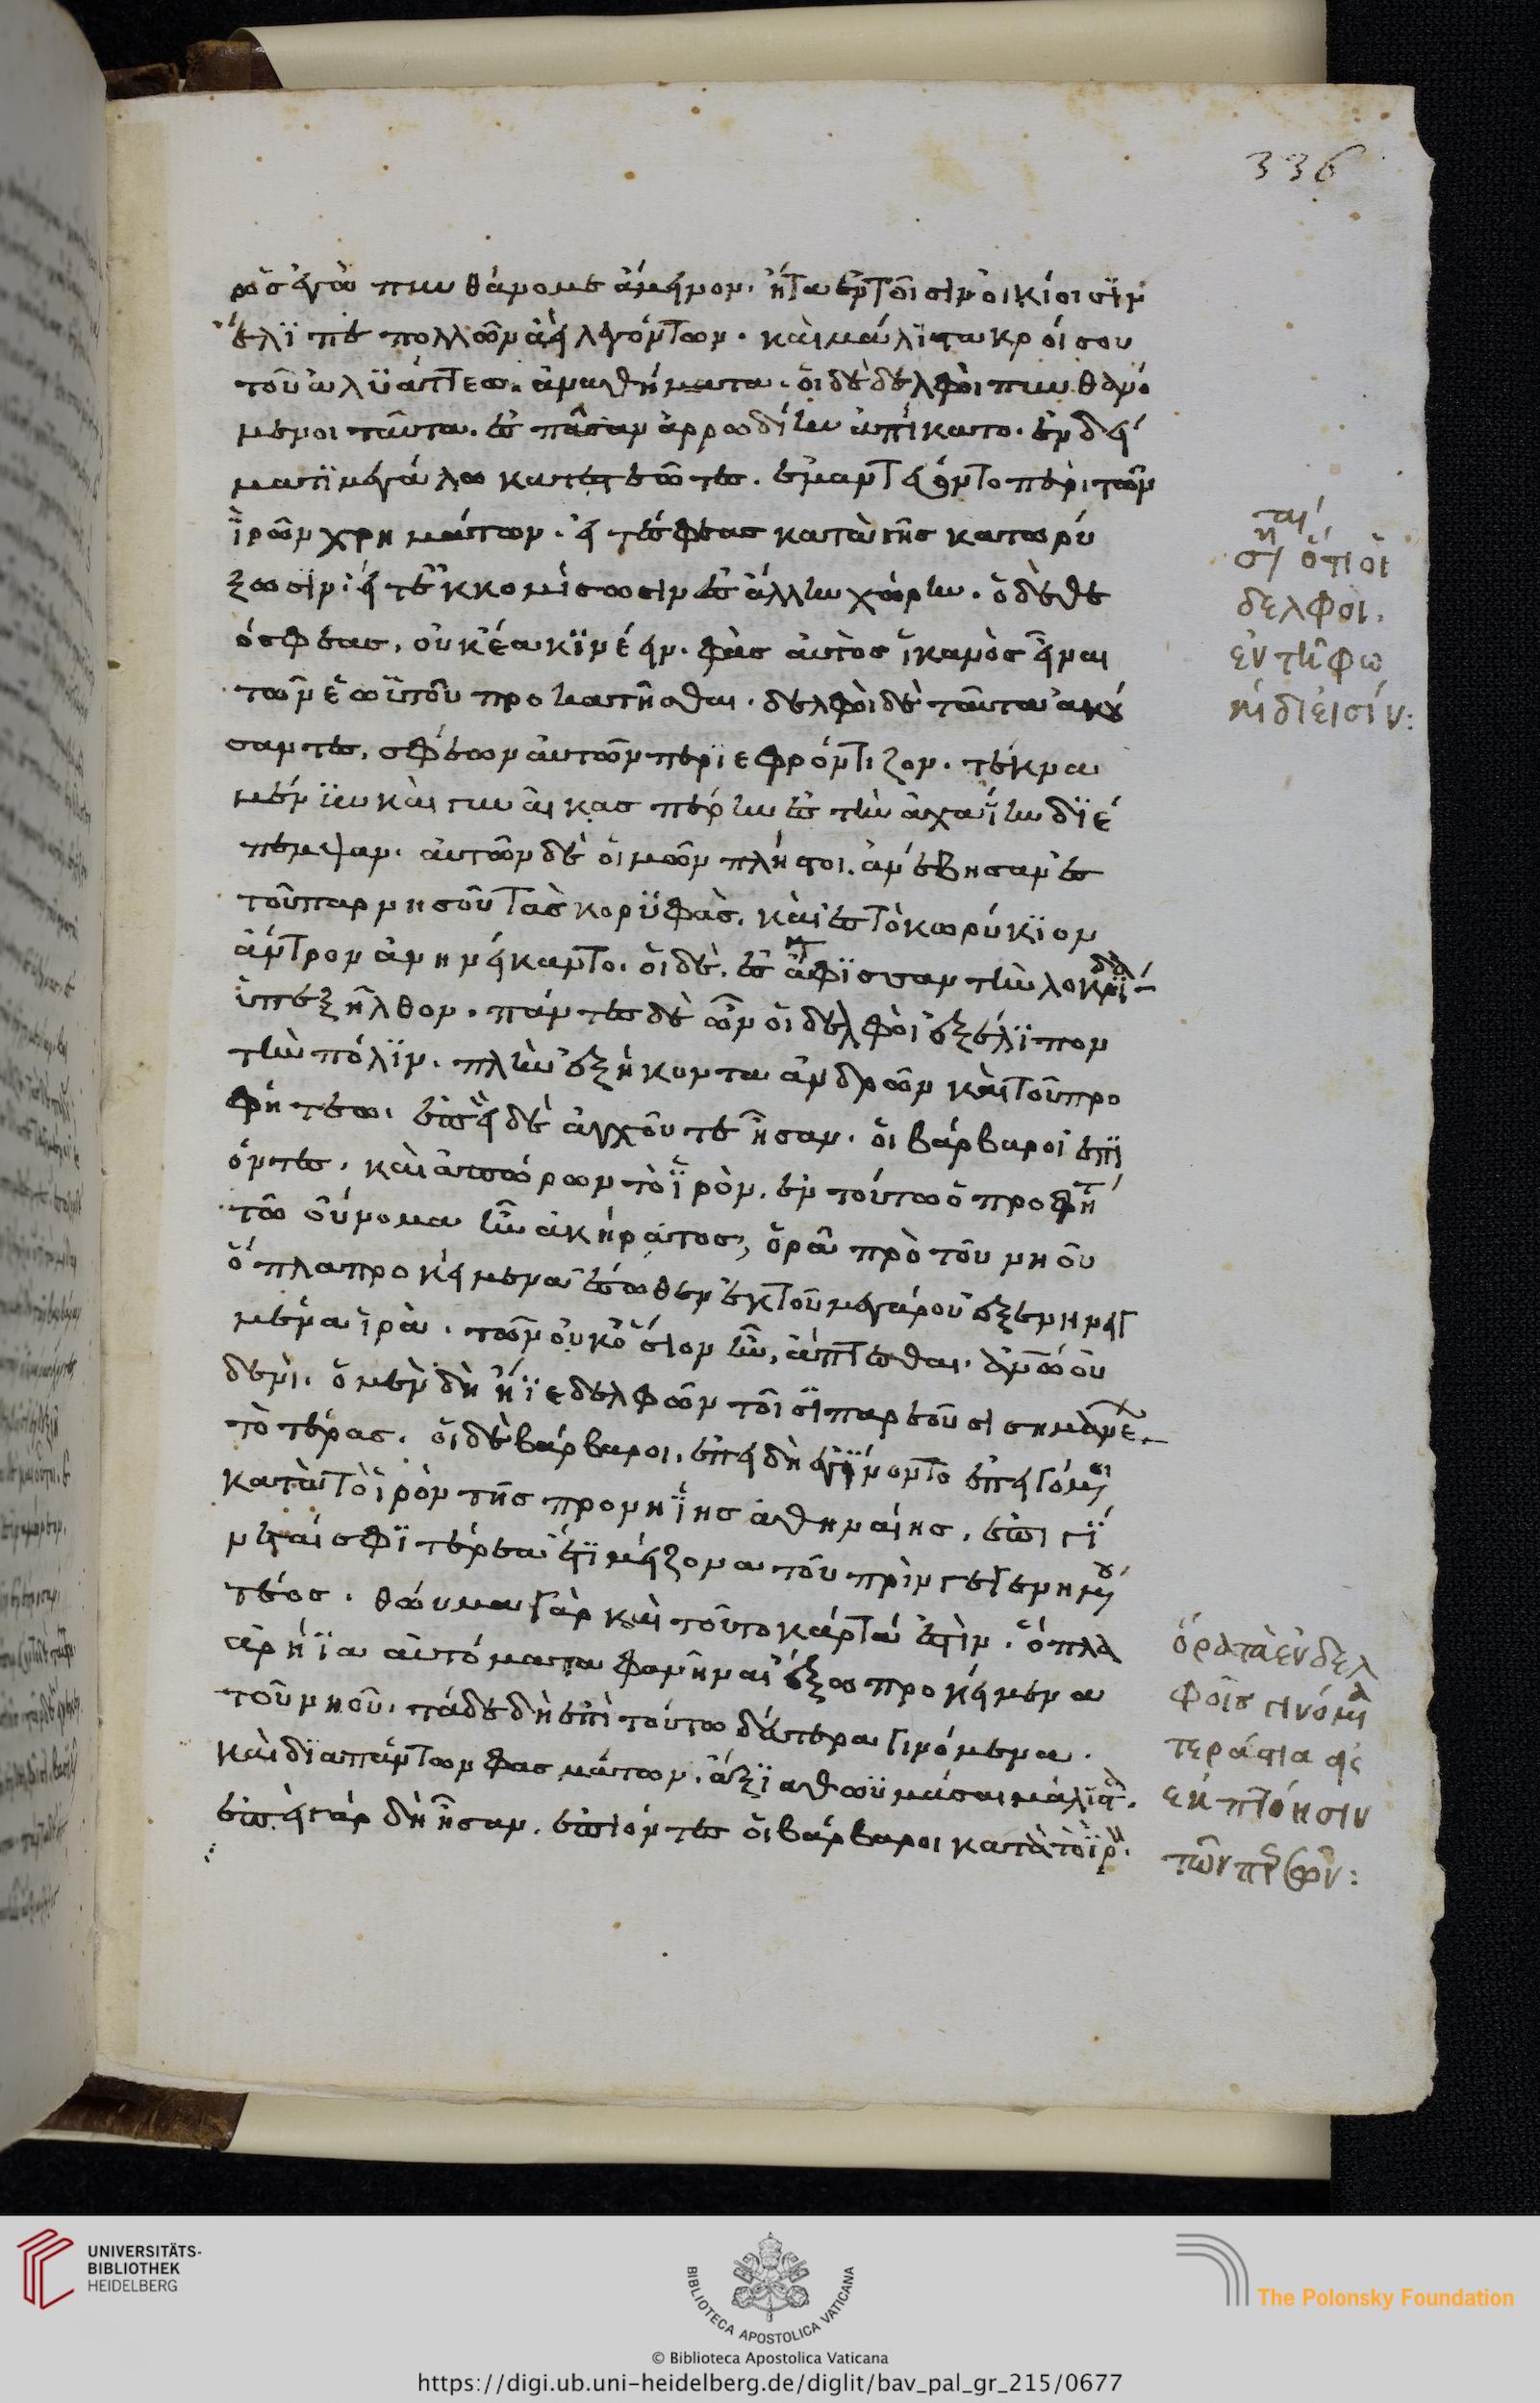 336
ρος ἐγὼ πυνθάνομε ἄμεινον. ἢ τὰ ἐν τοῖσιν οἰκίοισϊν
ἔλϊπε πολλῶν ἀεὶ λεγόντων. καὶ μάλϊστα κροίσου
τοῦ ἀλϋάττεω. ἀναθήματα. οἱ δὲ δελφοὶ πυνθανό
μενοι ταῦτα. ἐς πᾶσαν ἀρρωδίην ἀπίκατο. ἐν δεί
ματϊ μεγάλω κατεστεῶτες. ἐμαντεύοντο περὶ τῶν
ἱρῶν χρημάτων. εἴτε σφέας κατὰ γῆς κατωρύ
ξωσϊν. εἴτ' ἐκκομίσωσιν ἐς ἄλλην χώρην. ὁ δὲ θε
ός σφεας, οὐκ ἔα κϊνέειν. φὰς αὐτὸς ἱκανὸς εἶναι
τῶν ἑωϋτοῦ προκατῆσθαι. δελφοὶ δὲ ταῦτα ἀκού
σαντες, σφέων αὐτῶν πέρϊ ἐφρόντιζον. τέκνα
μέν νυν καὶ γυναῖκας πέρην ἐς τὴν ἀχαϊην δϊέ
πεμψαν. αὐτῶν δὲ οἱ μὲν πλεῖστοι. ἀνέβησαν ἐς
τοῦ παρνησοῦ τὰς κορϋφὰς. καὶ ἐς τὸ κωρύκϊον
ἄντρον ἀνηνείκαντο. οἱ δὲ. ἐς ἄμφϊσσαν τὴν λοκρϊδα
ὑπεξῆλθον. πάντες δὲ ὦν οἱ δελφοὶ ἐξέλϊπον
τὴν πόλϊν. πλὴν ἐξήκοντα ἀνδρῶν καὶ τοῦ προ
φήτεω. ἐπεὶ δὲ ἀγχοῦ τε ἦσαν. οἱ βάρβαροι ἐπϊ
όντες. καὶ ἀπώρων τὸ ἱρὸν. ἐν τούτω ὁ προφήτ
τῶ οὔνομα ἦν ἀκήρατος, ὁρᾶ πρὸ τοῦ νηοῦ
ὅπλα προκείμενα ἔσωθεν ἐκ τοῦ μεγάρου ἐξενηνειγ
μένα ἱρὰ. τῶν οὐκ ὅσιον ἦν, ἅπτεσθαι. ἀνθρώπων οὐ
δενὶ. ὁ μὲν δὴ ἤϊε δελφῶν τοῖσϊ παρεοῦσι σημανε
τὸ τέρας. οἱ δὲ βάρβαροι. ἐπειδὴ ἐγίνοντο ἐπειγόμενοι
κατὰ τὸ ἱρὸν τῆς προνηϊης ἀθηναίης. ἐπιγί
νεταί σφϊ τέρεα ἔτϊ μείζονα τοῦ πρὶν γενομένου
τέος. θώυμα γὰρ καὶ τοῦτο κάρτα ἐστὶν. ὅπλα
ἀρήϊα αὐτόματα φανῆναι ἔξω προκείμενα
τοῦ νηοῦ. τάδε δὴ ἐπὶ τούτω δεύτερα γινόμενα.
καὶ δϊαπάντων φασμάτων. ἄξϊα θωϋμάσαι μάλϊστα.
ἐπεὶ γὰρ δὴ ἦσαν. ἐπιόντες οἱ βάρβαροι κατὰ τὸ ἱρὸν.
ὅτι οἱ
δελφοὶ.
ἐν τῆ φω
κίδι εἰσίν:
ὅρα τὰ ἐν δελ
φοῖς γινόμενα
τεράστια εἰς
ἐκπτόησιν
τῶν περσῶν:
UNIVERSITÄTS-
BIBLIOTHEK
HEIDELBERG
BIBLIOTECA APOSTOLICA VATICANA
The Polonsky Foundation
© Biblioteca Apostolica Vaticana
https://digi.ub.uni-heidelberg.de/diglit/bav_pal_gr_215/0677